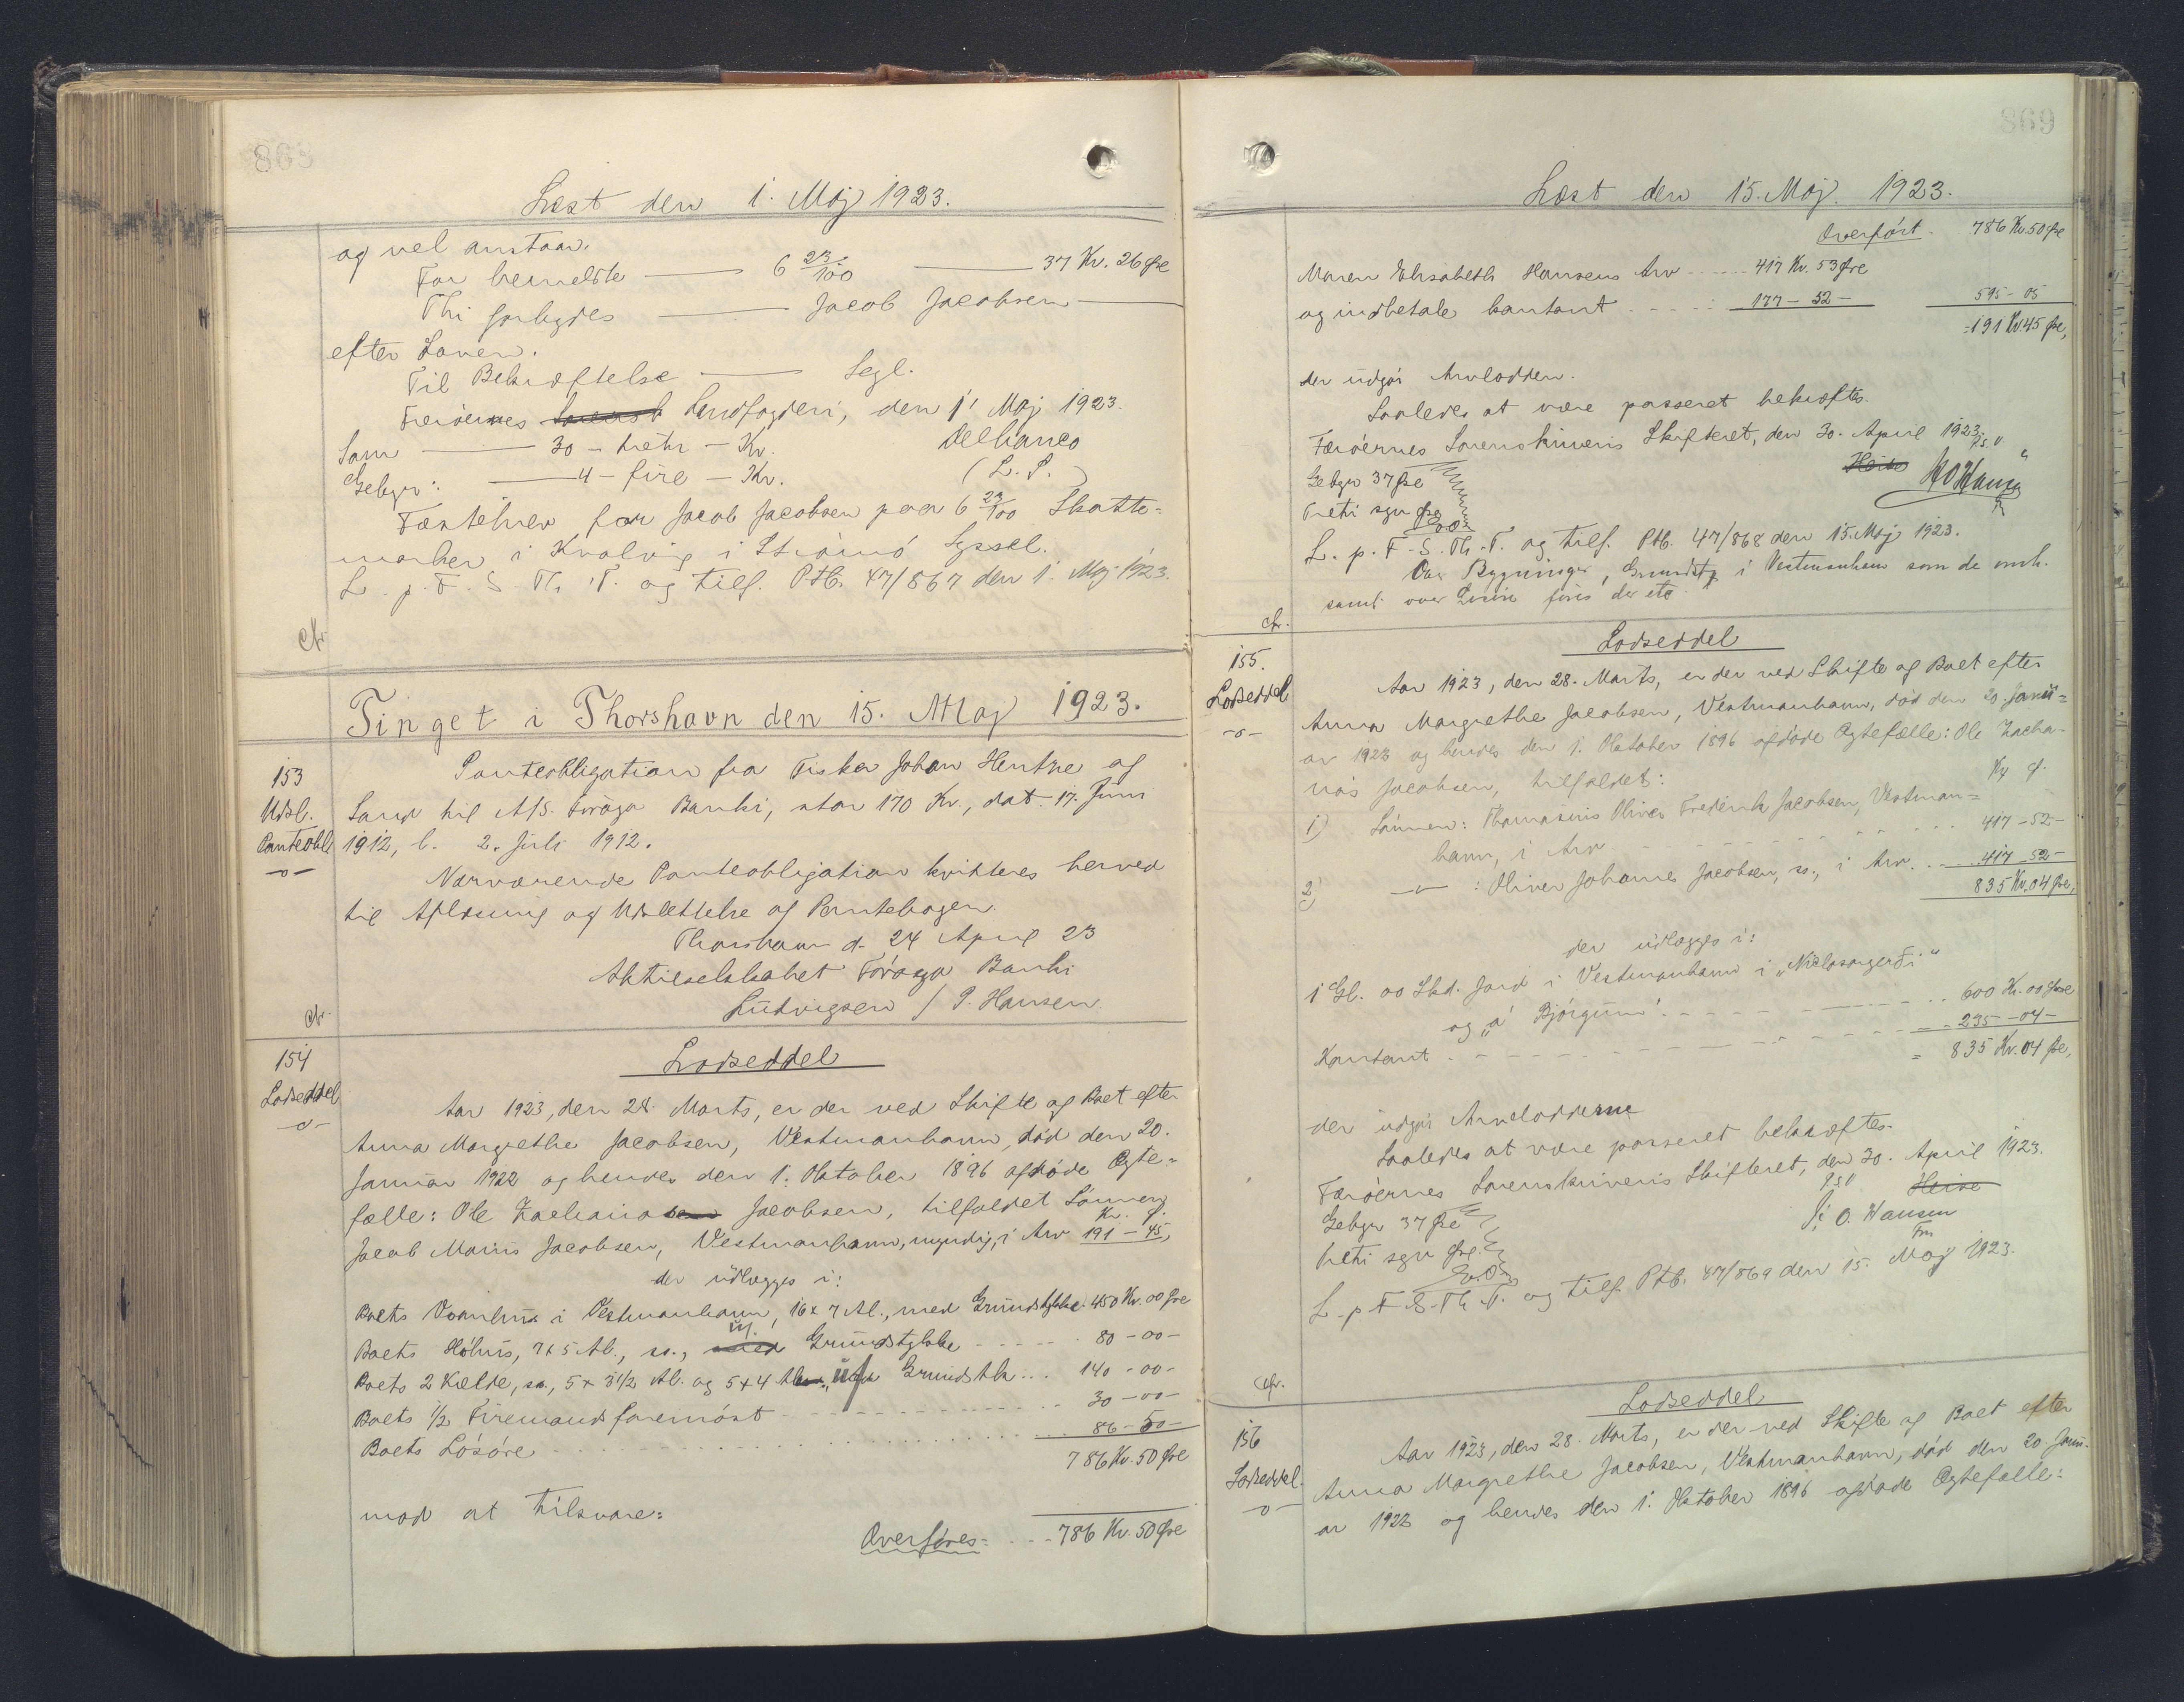 868
Læst den 1. Maj 1923.
og vel anstaar.
For bemeldte — 6 23/100 — 37 Kr. 26 Øre
Thi forbydes — Jacob Jacobsen —
efter Loven.
Til Bekræftelse — Segl.
Færøernes Landfogderi, den 1' Maj 1923.
Sum — 30 - tretti - Kr. Delbanco
Gebyr: — 4 - fire - Kr. (L. S.)
Fæstebrev for Jacob Jacobsen paa 6 23/100 Skatte=
marker i Kvalvig i Strømø Syssel.
L. p. F. S. Th. T. og tilf. Ptb. 47/867 den 1. Maj 1923.
Cfr.
Tinget i Thorshavn den 15. Maj 1923.
153
Udsl.
Panteobl
-o-
Panteobligation fra Fisker Johan Hentze af
Sand til A/S. Føroya Banki, stor 170 Kr., dat. 17. Juni
1912, l. 2. Juli 1912.
Nærværende Panteobligation kvitteres herved
til Aflæsning og Udslettelse af Pantebogen.
Thorshavn d. 24 April 23
Aktieselskabet Føroya Banki
Ludvigsen / P. Hansen
Cfr.
154
Lodseddel
-o-
Lodseddel
Aar 1923, den 28. Marts, er der ved Skifte af Boet efter
Anna Margrethe Jacobsen, Vestmanhavn, død den 20.
Januar 1922 og hendes den 1. Oktober 1896 afdøde Ægte=
fælle: Ole Zacharias Jacobsen, tilfaldet Sønnen
Kr. Ø.
Jacob Marius Jacobsen, Vestmanhavn, myndig, i Arv 191 - 45,
der udlægges i:
Boets Vaanhus i Vestmanhavn, 16 x 7 Al., med Grundstykke. 450 Kr. 00 Øre
Boets Høhus, 7 x 5 Al., sa., u/. Grundstykke - - - - - 80 - 00 -
Boets 2 Kælde, sa., 5 x 3 1/2 Al. og 5 x 4 Al., u/ Grundstk... 140 - 00 -
Boets 1/2 Firemandsfaremøst - - - - - 30 - 00 -
Boets Løsøre . . . . . . 86 - 50 -
786 Kr. 50 Øre
mod at tilsvare:
Overføres: - - - 786 Kr. 50 Øre
869
Læst den 15. Maj 1923.
Overført - 786 Kr. 50 Øre
Maren Elisabeth Hansens Arv - - - - - 417 Kr. 53 Øre
og indbetale kontant . - - - - 177 - 52 - 595 - 05
= 191 Kr. 45 Øre,
der udgør Arvelodden.
Saaledes at være passeret bekræftes.
Færøernes Sorenskriveris Skifteret, den 30. April 1923.
Gebyr 37 Øre
Treti syv Øre
L. p. F. S. Th. T. og tilf. Ptb. 47/868 den 15. Maj 1923.
Over Bygninger, Grundst. i Vestmanhavn som de omh.
samt over Løsøre føres der etc.
Cfr.
155.
Lodseddel
-o-
Lodseddel
Aar 1923, den 28. Marts, er der ved Skifte af Boet efter
Anna Margrethe Jacobsen, Vestmanhavn, død den 20. Janu=
ar 1922 og hendes den 1. Oktober 1896 afdøde Ægtefælle: Ole Zacha-
rias Jacobsen, tilfaldet: Kr. Ø.
1) Sønnen: Thomasius Oliver Frederik Jacobsen, Vestman=
havn, i Arv - - - - - 417 - 52 -
2) -"- : Oliver Johannes Jacobsen, sa., i Arv. - - - - 417 - 52 -
835 Kr. 04 Øre,
der udlægges i:
1 Gl. 00 Skd. Jord i Vestmanhavn i
og „á Bjørgum" . - - - - 600 Kr. 00 Øre
Kontant . - - - - - 235 - 04 -
= 835 Kr. 04 Øre,
der udgør Arvelodderne
Saaledes at være passeret bekræftes.
Færøernes Sorenskriveris Skifteret, den 30. April 1923.
Gebyr 37 Øre
Heise
treti syv Øre.
O. Hansen
Fm
L. p. F. S. Th. T. og tilf. Ptb. 47/869 den 15. Maj 1923.
Cfr.
156
Lodseddel.
-o-
Lodseddel
Aar 1923, den 28. Marts, er der ved Skifte af Boet efter
Anna Margrethe Jacobsen, Vestmanhavn, død den 20. Janu-
ar 1922 og hendes den 1. Oktober 1896 afdøde Ægtefælle: